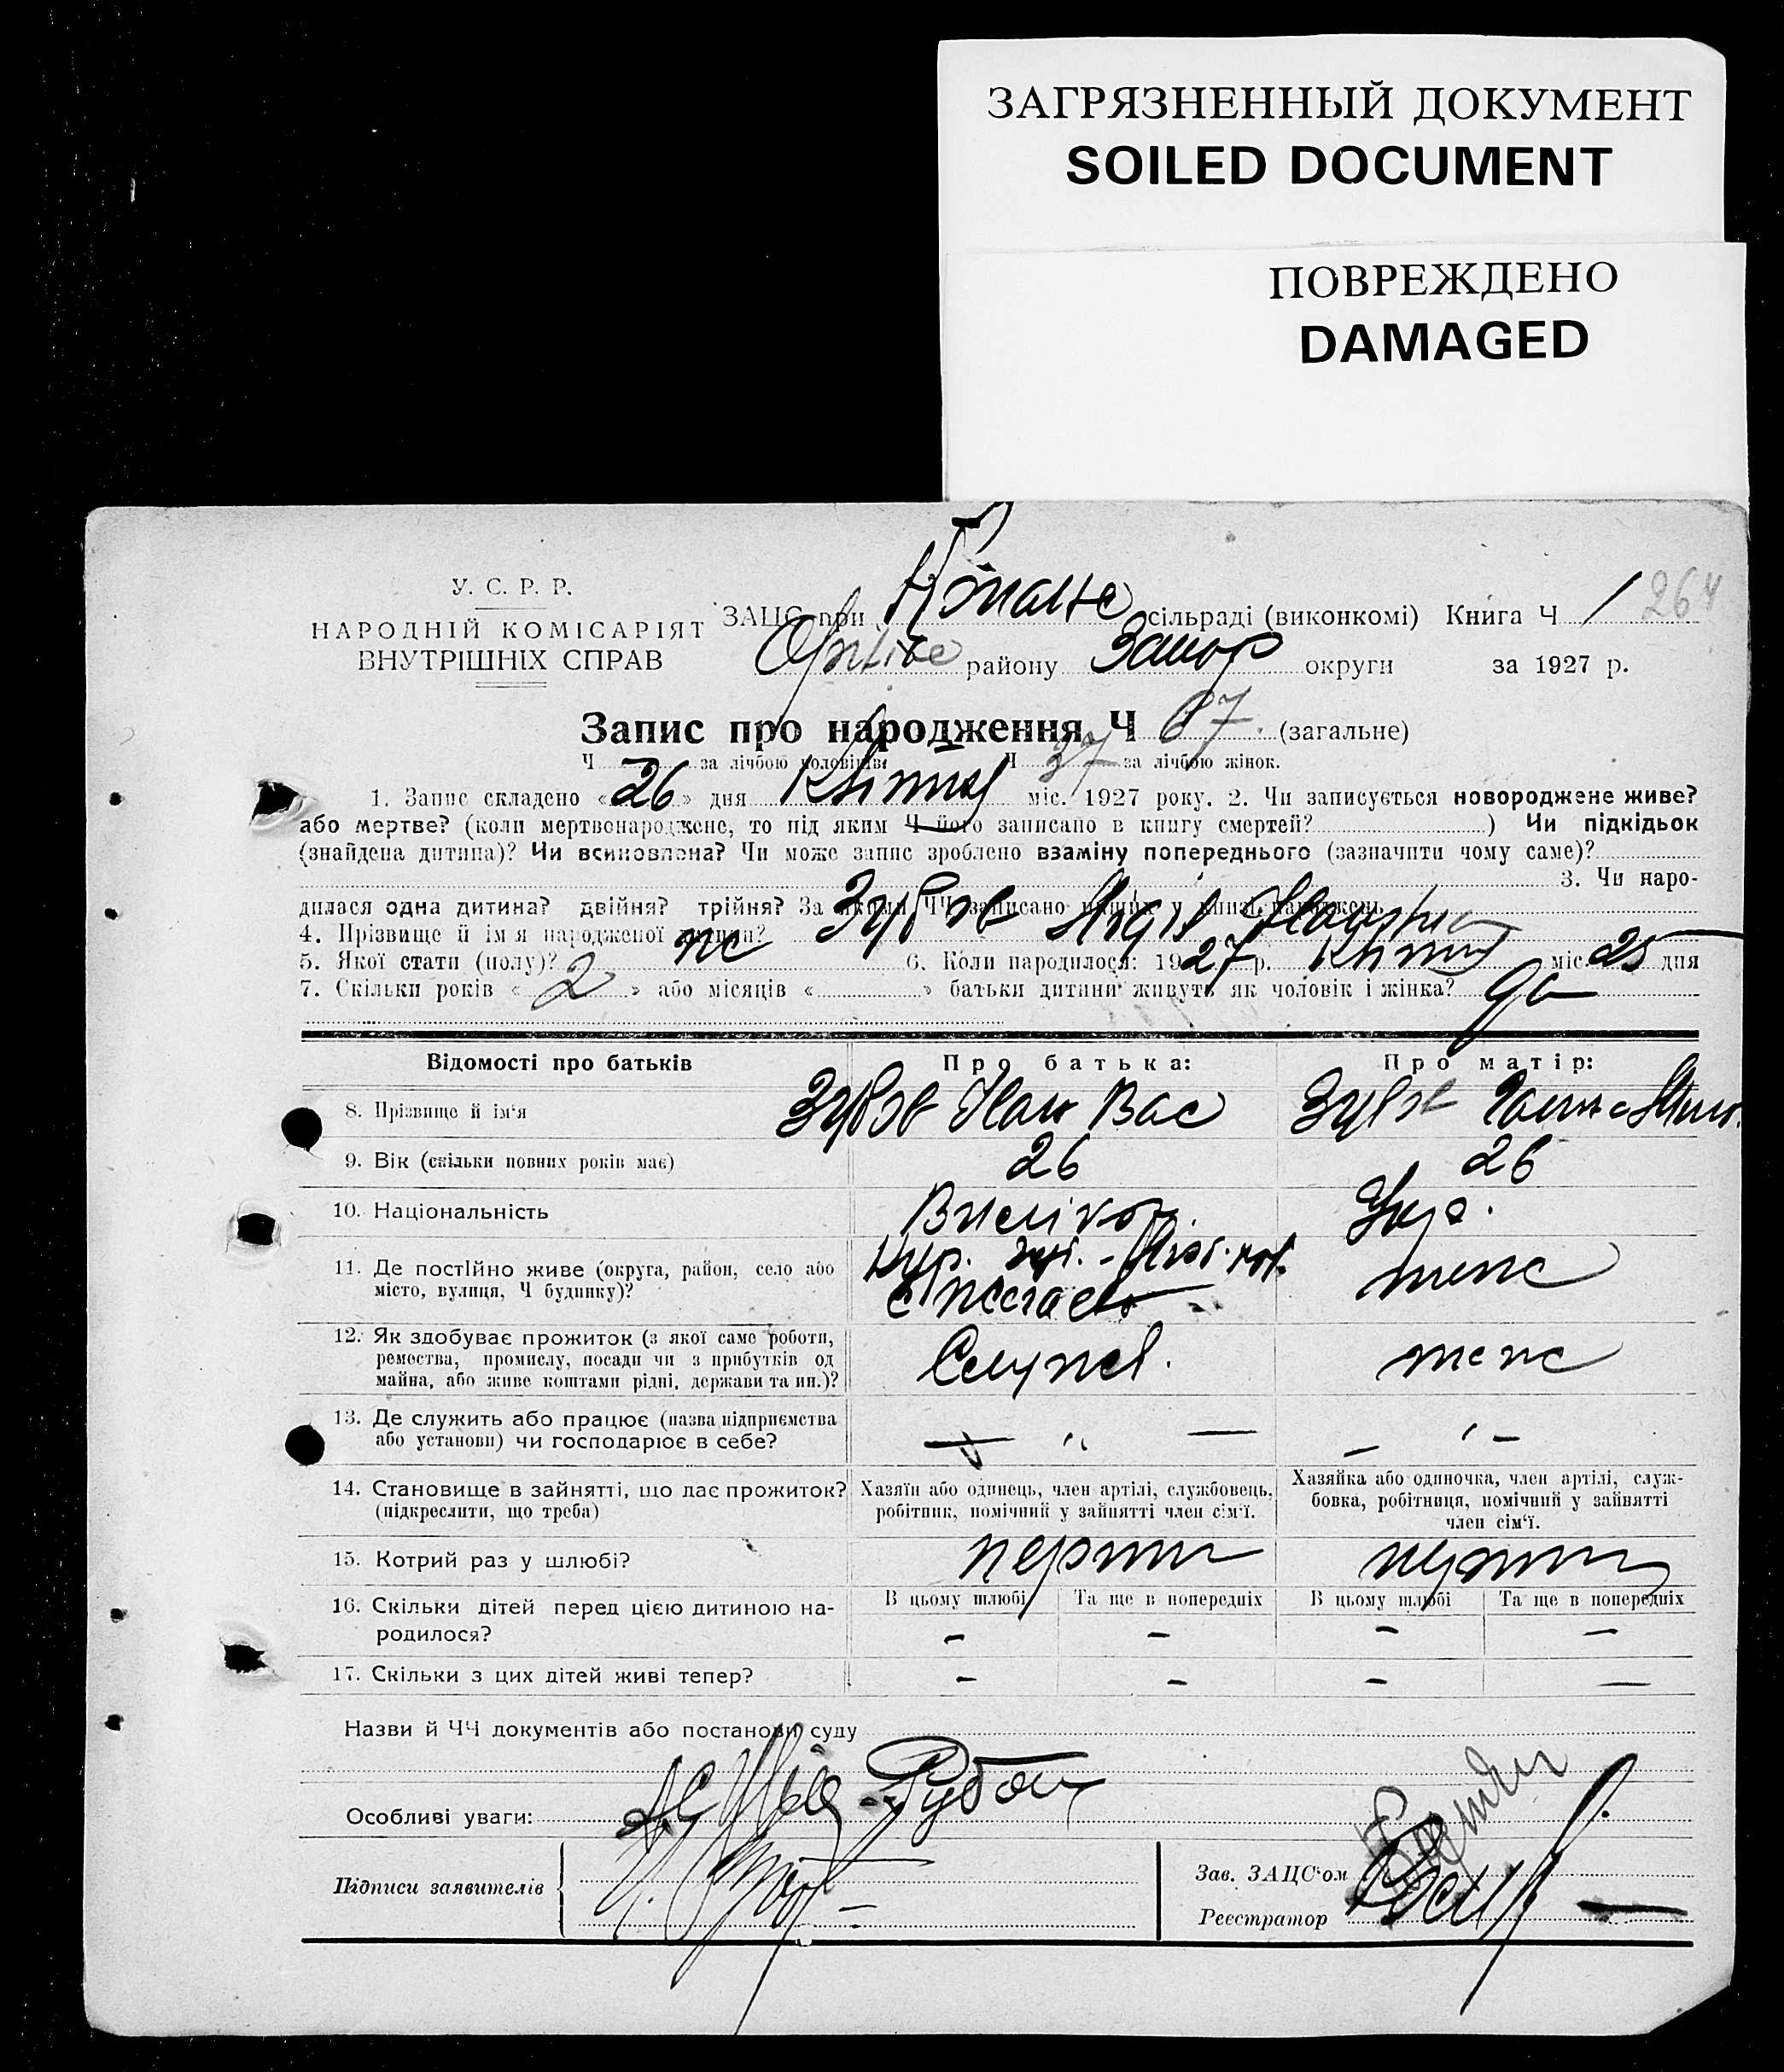 ЗАГРЯЗНЕННЫЙ ДОКУМЕНТ
SOILED DOCUMENT
ПОВРЕЖДЕНО
DAMAGED
У. С. Р. Р.
НАРОДНІЙ КОМІСАРІЯТ
ВНУТРІШНІХ СПРАВ
ЗАЦС при сільраді (виконкомі) Книга Ч 1 264
району Запор округи за 1927 р.
Запис про народження Ч 67 (загальне)
Ч — за лічбою чоловіків Ч 37 за лічбою жінок.
1. Запис складено «26» дня Квітня міс. 1927 року. 2. Чи записується новороджене живе?
або мертве? (коли мертвонароджене, то під яким Ч його записано в книгу смертей? ) Чи підкідьок
(знайдена дитина)? Чи всиновлена? Чи може запис зроблено взаміну попереднього (зазначити чому саме)?
3. Чи наро-
дилася одна дитина? двійня? трійня? За якими ЧЧ записано инших у книзі народжень
4. Прізвище й ім'я народженої дитини? Зубов
5. Якої стати (полу)? 6. Коли народилося: 1927 р. Квітня міс. 25 дня
7. Скільки років «2» або місяців « » батьки дитини живуть як чоловік і жінка? да
Відомості про батьків Про батька: Про матір:
8. Прізвище й ім'я Зубов Іван Вас Зубов
9. Вік (скільки повних років має) 26 26
10. Національність Укра.
11. Де постійно живе (округа, район, село або
місто, вулиця, Ч будинку)? теж
12. Як здобуває прожиток (з якої саме роботи,
ремества, промислу, посади чи з прибутків од
майна, або живе коштами рідні, держави та ин.)?
13. Де служить або працює (назва підприємства
або установи) чи господарює в себе?
14. Становище в зайнятті, що дає прожиток? Хазяїн або одинець, член артілі, службовець, Хазяйка або одиночка, член артілі, служ-
(підкреслити, що треба) робітник, помічний у зайнятті член сім'ї. бовка, робітниця, помічний у зайнятті
член сім'ї.
15. Котрий раз у шлюбі?
В цьому шлюбі Та ще в попередніх В цьому шлюбі Та ще в попередніх
16. Скільки дітей перед цією дитиною на-
родилося? — — — —
17. Скільки з цих дітей живі тепер? — — — —
Назви й ЧЧ документів або постанови суду
Особливі уваги:
Підписи заявителів
Зав. ЗАЦС'ом
Реєстратор